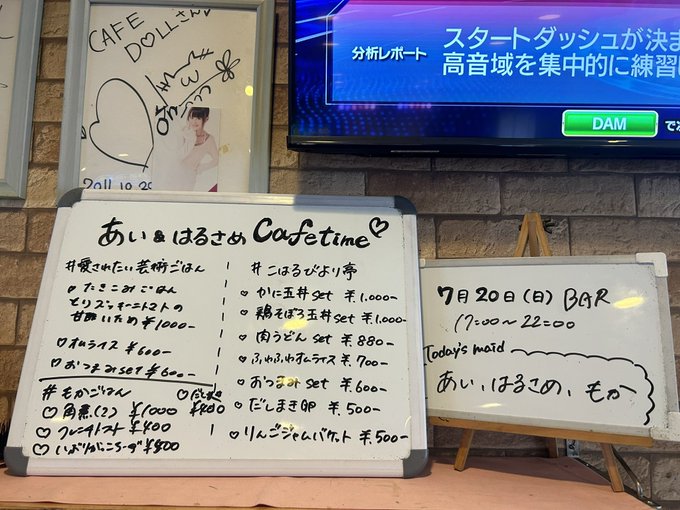 CAFE
DOLLさん♡
2011.10.29
分析レポート
スタートダッシュが決ま
高音域を集中的に練習
DAM
で
あい&はるさめ Cafetime♡
#愛されたい芸術ごはん
♡たきこみごはん
とりズッキーニトマトの
甘酢いため ¥1000-
♡オムライス ¥600-
♡おつまみset ¥600-
#もかごはん
♡だしまき
¥400
♡角煮(2) ¥1000
♡フレンチトースト ¥400
♡いぶりがっこチーズ ¥400
#こはるびより亭
♡かに玉丼set ¥1,000-
♡鶏そぼろ玉丼set ¥1,000-
♡肉うどんset ¥880-
♡ふわふわオムライス ¥700-
♡おつまみset ¥600-
♡だしまき卵 ¥500-
♡りんごジャムバゲット ¥500-
7月20日(日) BAR
17:00~22:00
Today's maid
あい、はるさめ、もか